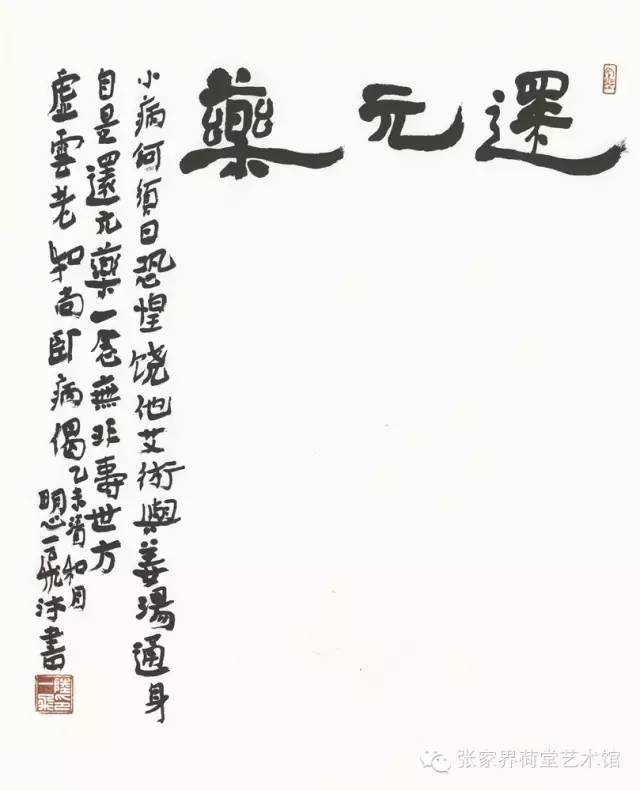 還元藥
小病何須日恐惶饶他艾術與姜湯通身
自是還元藥一無非壽世方
虛雲老和尚卧病偈
乙未清和月
明心一飛沐書
张家界荷堂艺术馆